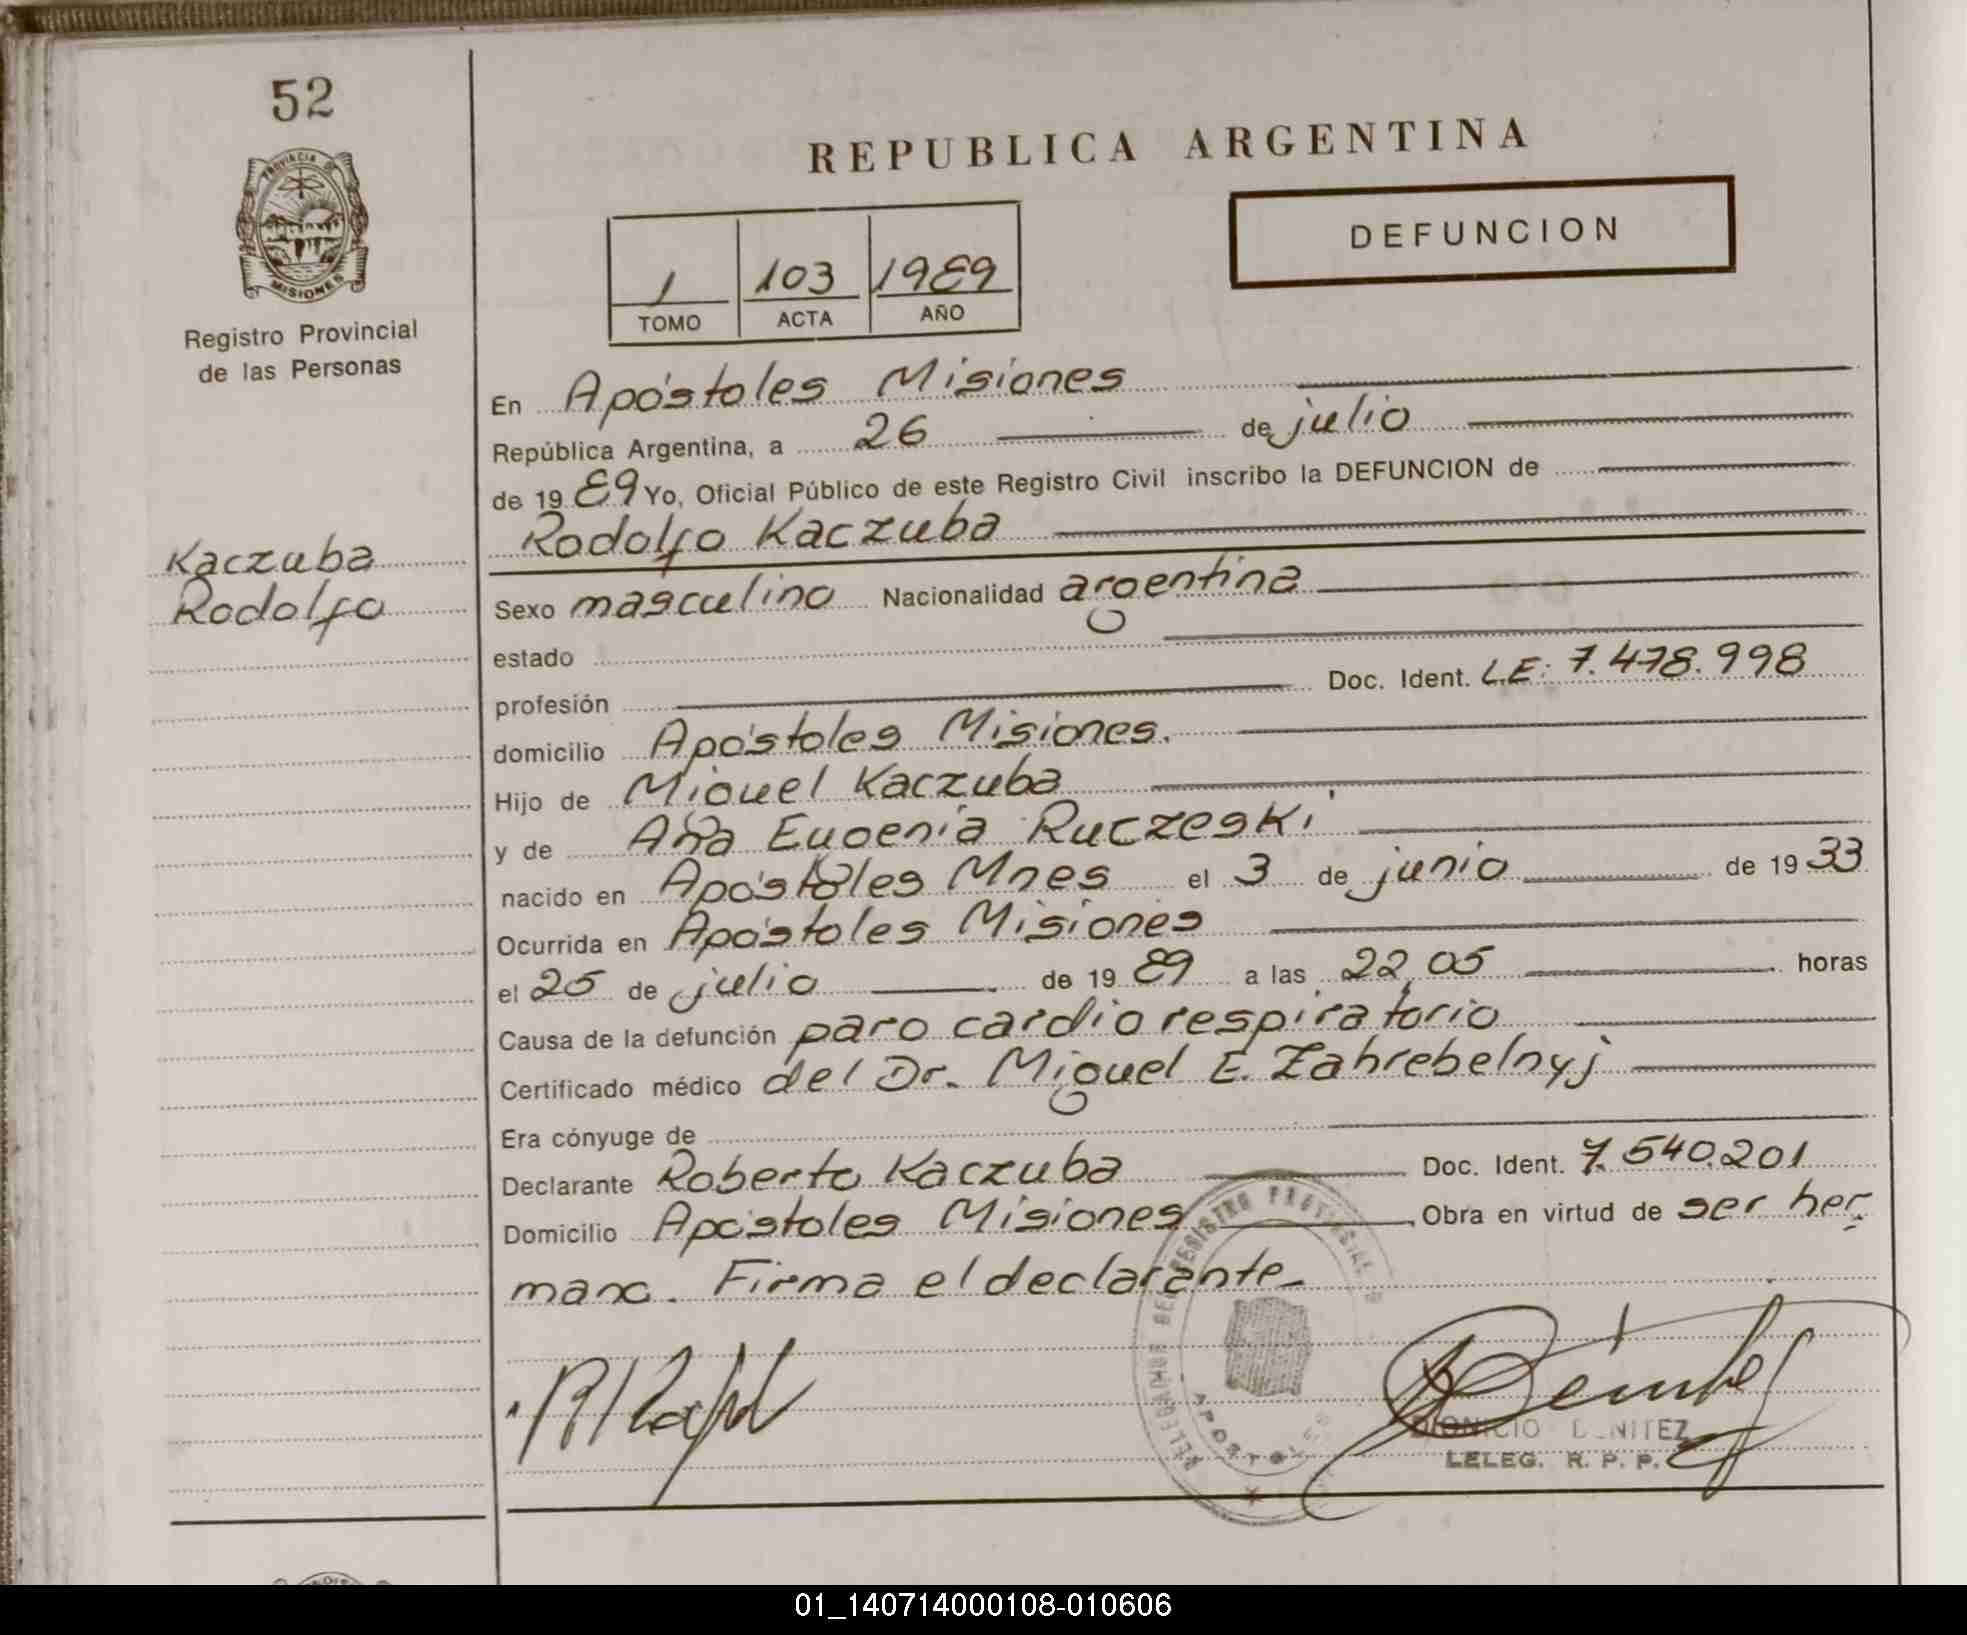 52
PROVINCIA DE
MISIONES
Registro Provincial
de las Personas
Kaczuba
Rodolfo
REPUBLICA ARGENTINA
DEFUNCION
1 103 1989
TOMO ACTA AÑO
En Apóstoles Misiones
República Argentina, a 26 de julio
de 19 89 Yo, Oficial Público de este Registro Civil inscribo la DEFUNCION de
Rodolfo Kaczuba
Sexo masculino Nacionalidad argentina
estado
profesión Doc. Ident. L.E: 7.478.998
domicilio Apóstoles Misiones.
Hijo de Miguel Kaczuba
y de Ana Eugenia Ruczeski
nacido en Apóstoles Mnes el 3 de junio de 19 33
Ocurrida en Apóstoles Misiones
el 25 de julio de 19 89 a las 22,05 horas
Causa de la defunción paro cardiorespiratorio
Certificado médico del Dr. Miguel E. Zahrebelnyj
Era cónyuge de
Declarante Roberto Kaczuba Doc. Ident. 7.540.201
Domicilio Apóstoles Misiones, Obra en virtud de ser her
mano. Firma el declarante
REGISTRO PROVINCIAL
APOSTOLES
DIONICIO BENITEZ
DELEG. R. P. P.
01_140714000108-010606